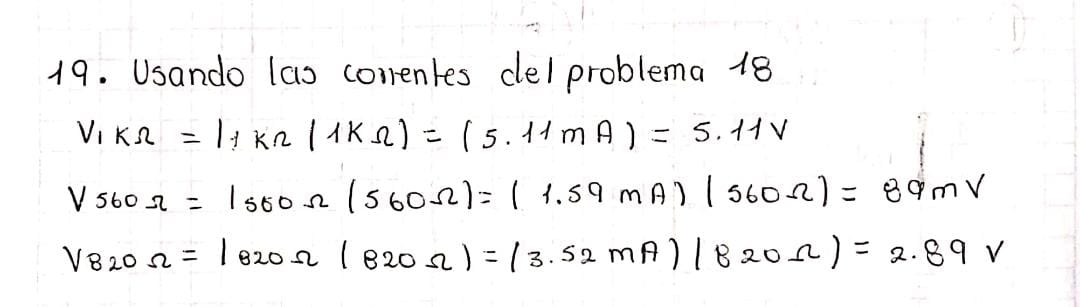 19. Usando las corrientes del problema 18
V1KΩ = I1KΩ (1KΩ) = (5.11mA) = 5.11V
V560Ω = I560Ω (560Ω) = (1.59 mA) (560Ω) = 89mV
V820Ω = I820Ω (820Ω) = (3.52 mA) (820Ω) = 2.89 V